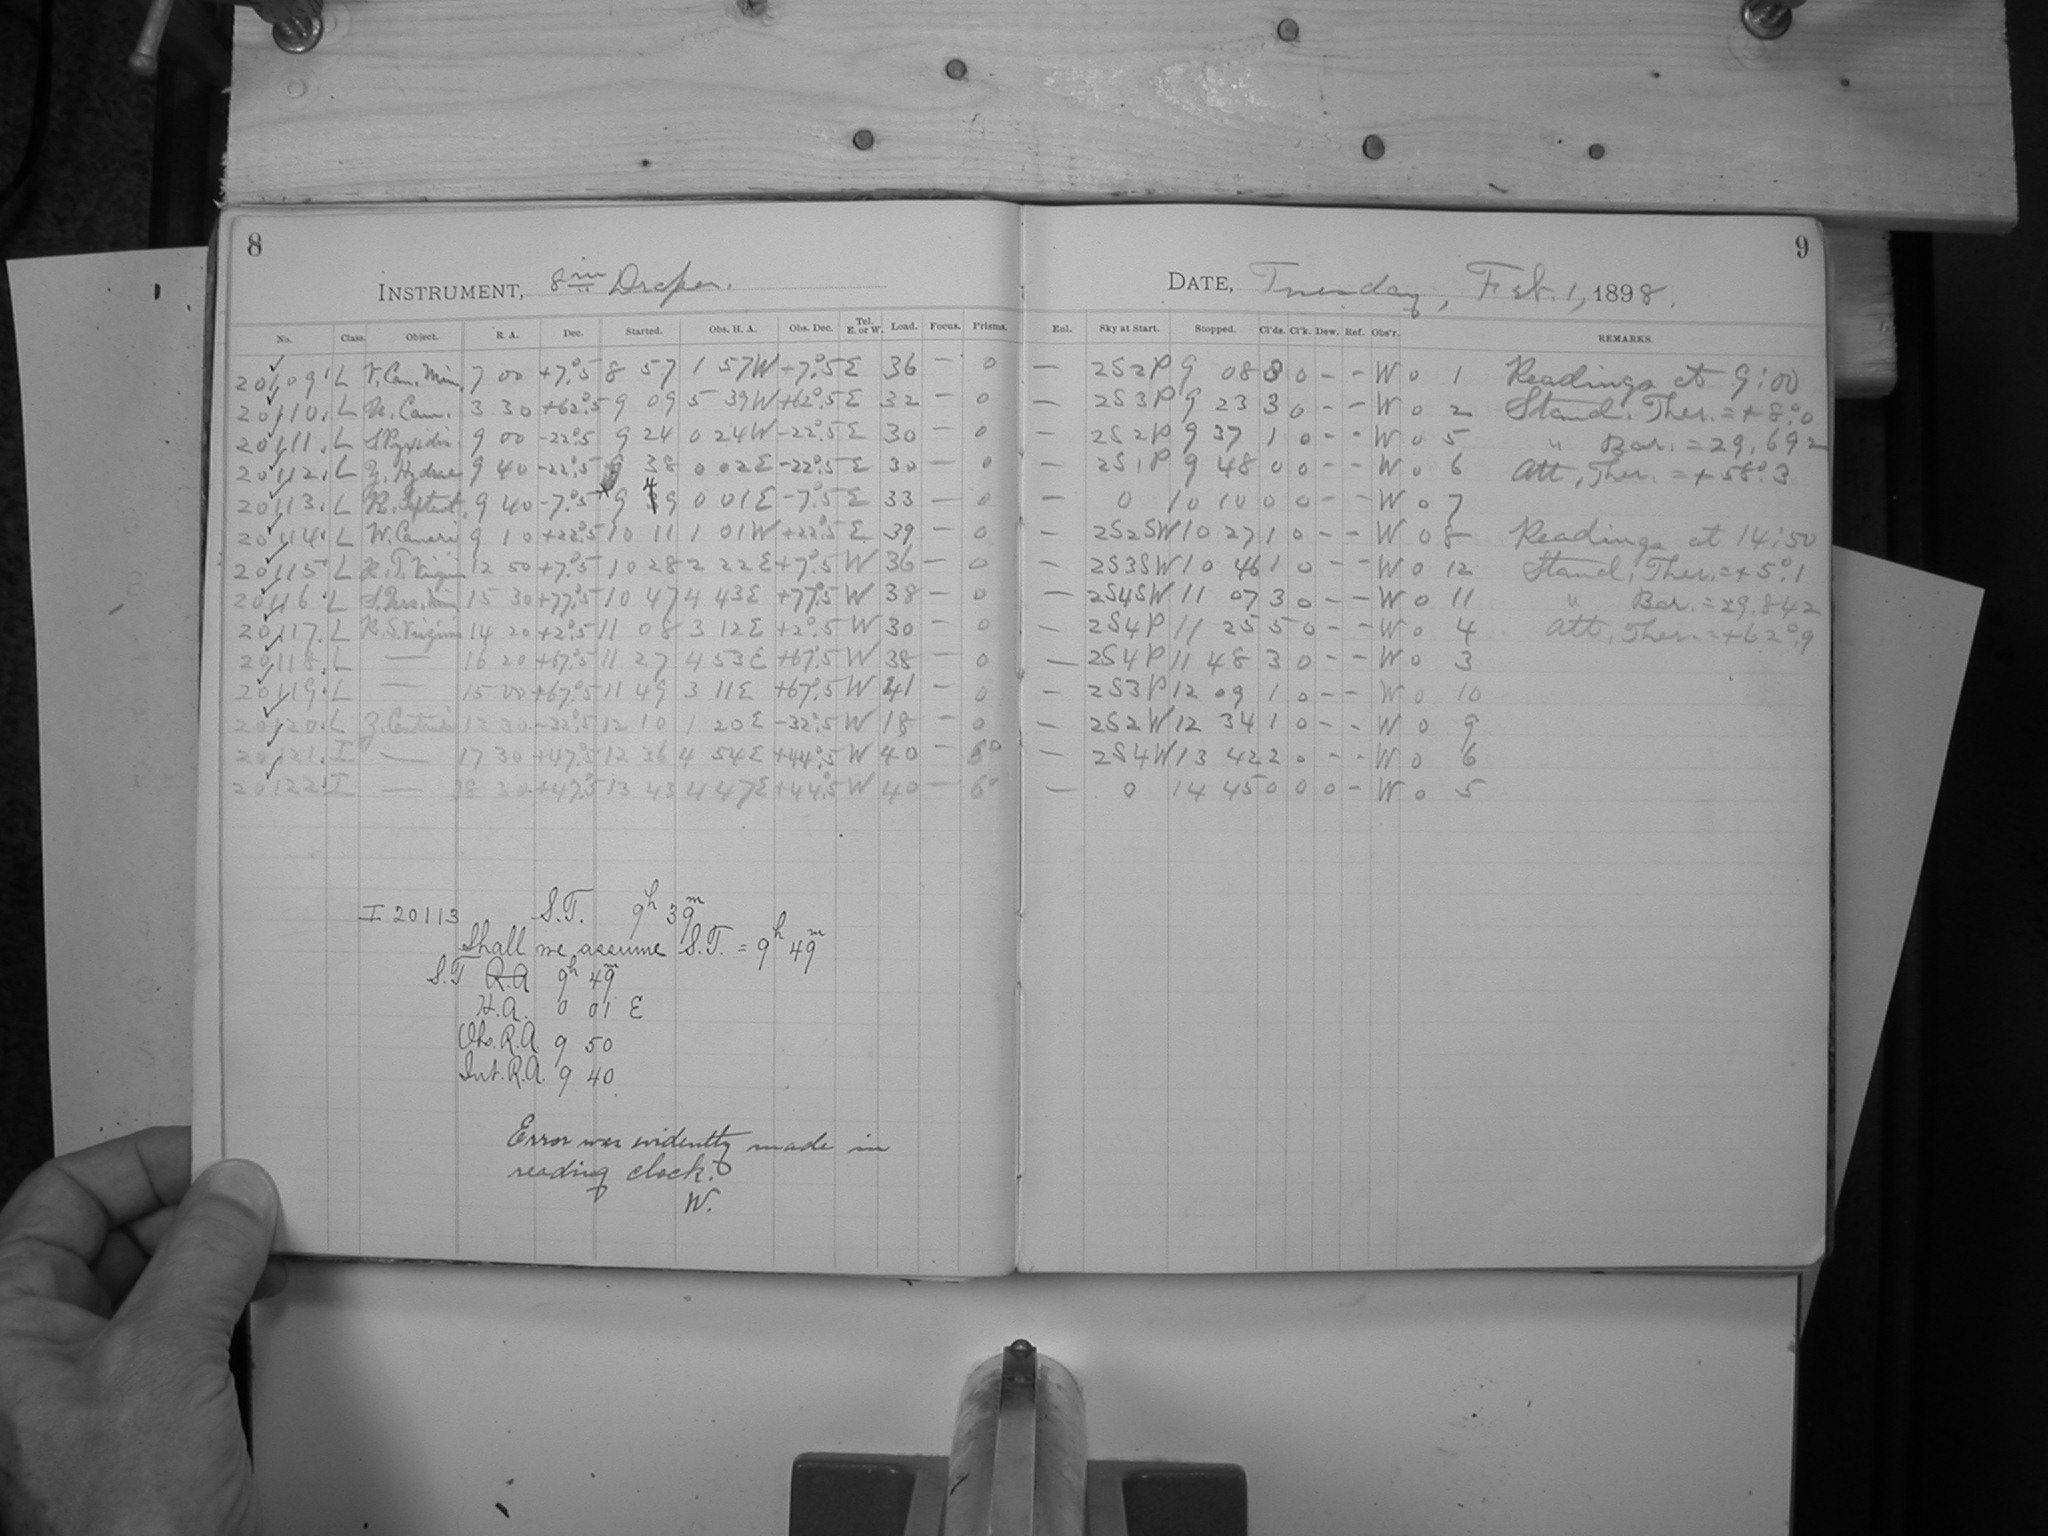 8
INSTRUMENT, 8 in Draper.
No. Class. Object. R. A. Dec. Started. Obs. H. A. Obs. Dec. Tel. E. or W. Load. Focus. Prisms.
20109. L V. Can. Min. 7 00 +7°.5 8 57 1 57 W +7°.5 E 36 — 0
20110. L U. Cam. 3 30 +62°.5 9 09 5 39 W +62°.5 E 32 — 0
20111. L S Pyxidis 9 00 -22°.5 9 24 0 24 W -22°.5 E 30 — 0
20112. L Y. Hydrae 9 40 -22°.5 9 38 0 02 E -22°.5 E 30 — 0
20113. L 9 40 -7°.5 9 49 0 01 E -7°.5 E 33 — 0
20114. L W. Cancri 9 10 +22°.5 10 11 1 01 W +22°.5 E 39 — 0
20115. L R. T. Virginis 12 50 +7°.5 10 28 2 22 E +7°.5 W 36 — 0
20116. L S. Urs. Min. 15 30 +77°.5 10 47 4 43 E +77°.5 W 38 — 0
20117. L R. S. Virginis 14 20 +2°.5 11 08 3 12 E +2°.5 W 30 — 0
20118. L — 16 20 +67°.5 11 27 4 53 E +67°.5 W 38 — 0
20119. L — 15 00 +67°.5 11 49 3 11 E +67°.5 W 41 — 0
20120. L Z. Centauri 13 30 -32°.5 12 10 1 20 E -32°.5 W 18 — 0
20121. I — 17 30 +47°.5 12 36 4 54 E +44°.5 W 40 — 6°
20122. I — 18 30 +47°.5 13 43 4 47 E +44°.5 W 40 — 6°
I 20113 S.T. 9h 39m
Shall we assume S.T. = 9h 49m
S.T R.A 9h 49m
H.A. 0 01 E
Obs. R.A. 9 50
Int. R.A. 9 40
Error was evidently made in
reading clock.
W.
9
DATE, Tuesday, Feb. 1, 1898.
Enl. Sky at Start. Stopped. Cl'ds. Cl'k. Dew. Ref. Obs'r. REMARKS.
— 2S2P 9 08 3 0 - - W 0 1 Readings at 9:00
— 2S3P 9 23 3 0 - - W 0 2 Stand. Ther. = +8°.0
— 2S2P 9 37 1 0 - - W 0 5 " Bar. = 29.692
— 2S1P 9 48 0 0 - - W 0 6 Att. Ther. = +58°.3
— 0 10 10 0 0 - - W 0 7
— 2S2SW 10 27 1 0 - - W 0 8 Readings at 14:50
— 2S3SW 10 46 1 0 - - W 0 12 Stand. Ther. = +5°.1
— 2S4SW 11 07 3 0 - - W 0 11 " Bar. = 29.842
— 2S4P 11 25 5 0 - - W 0 4 Att. Ther. = +62°.9
— 2S4P 11 48 3 0 - - W 0 3
— 2S3P 12 09 1 0 - - W 0 10
— 2S2W 12 34 1 0 - - W 0 9
— 2S4W 13 42 2 0 - - W 0 6
— 0 14 45 0 0 0 - W 0 5